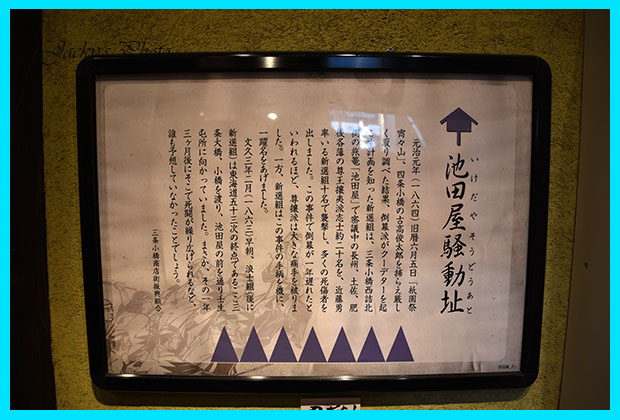 Jacky's Photo
いけだやそうどうあと
池田屋騒動址
元治元年(一八六四)旧暦六月五日「祇園祭
宵々山」、四条小橋の古高俊太郎を捕らえ厳し
く取り調べた結果、倒幕派がクーデターを起
計画を知った新選組は、三条小橋西詰北
の旅籠「池田屋」で密議中の長州、土佐、肥
後各藩の尊王攘夷派志士約二十名を、近藤勇
率いる新選組十名で襲撃し、多くの死傷者を
出しました。この事件で倒幕が一年遅れたと
いわれるほど、尊攘派は大きな痛手を被りま
した。一方、新選組はこの事件の手柄を機に、
一躍名をあげました。
文久三年二月(一八六三)早朝、浪士組(後に
新選組)は東海道五十三次の終点であるここ三
条大橋、小橋を渡り、池田屋の前を通り壬生
屯所に向かっていました。まさか、その一年
三ヶ月後にそこで死闘が繰り広げられるなど、
誰も予想していなかったことでしょう。
三条小橋商店街振興組合